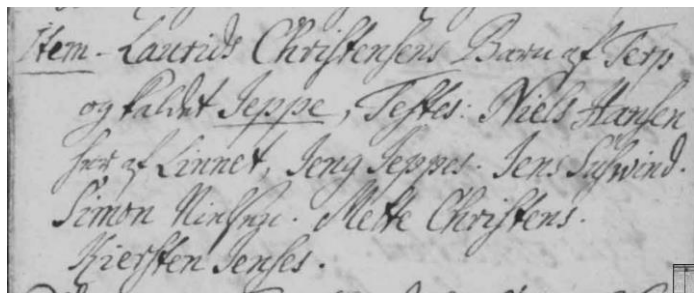 Item. Laurids Christensens Barn af Terp
og kaldet Jeppe, Testes: Niels Hansen
her af Linnet, Jens Jeppes. Jens
Simon Mette Christens.
Kiersten Jenses.